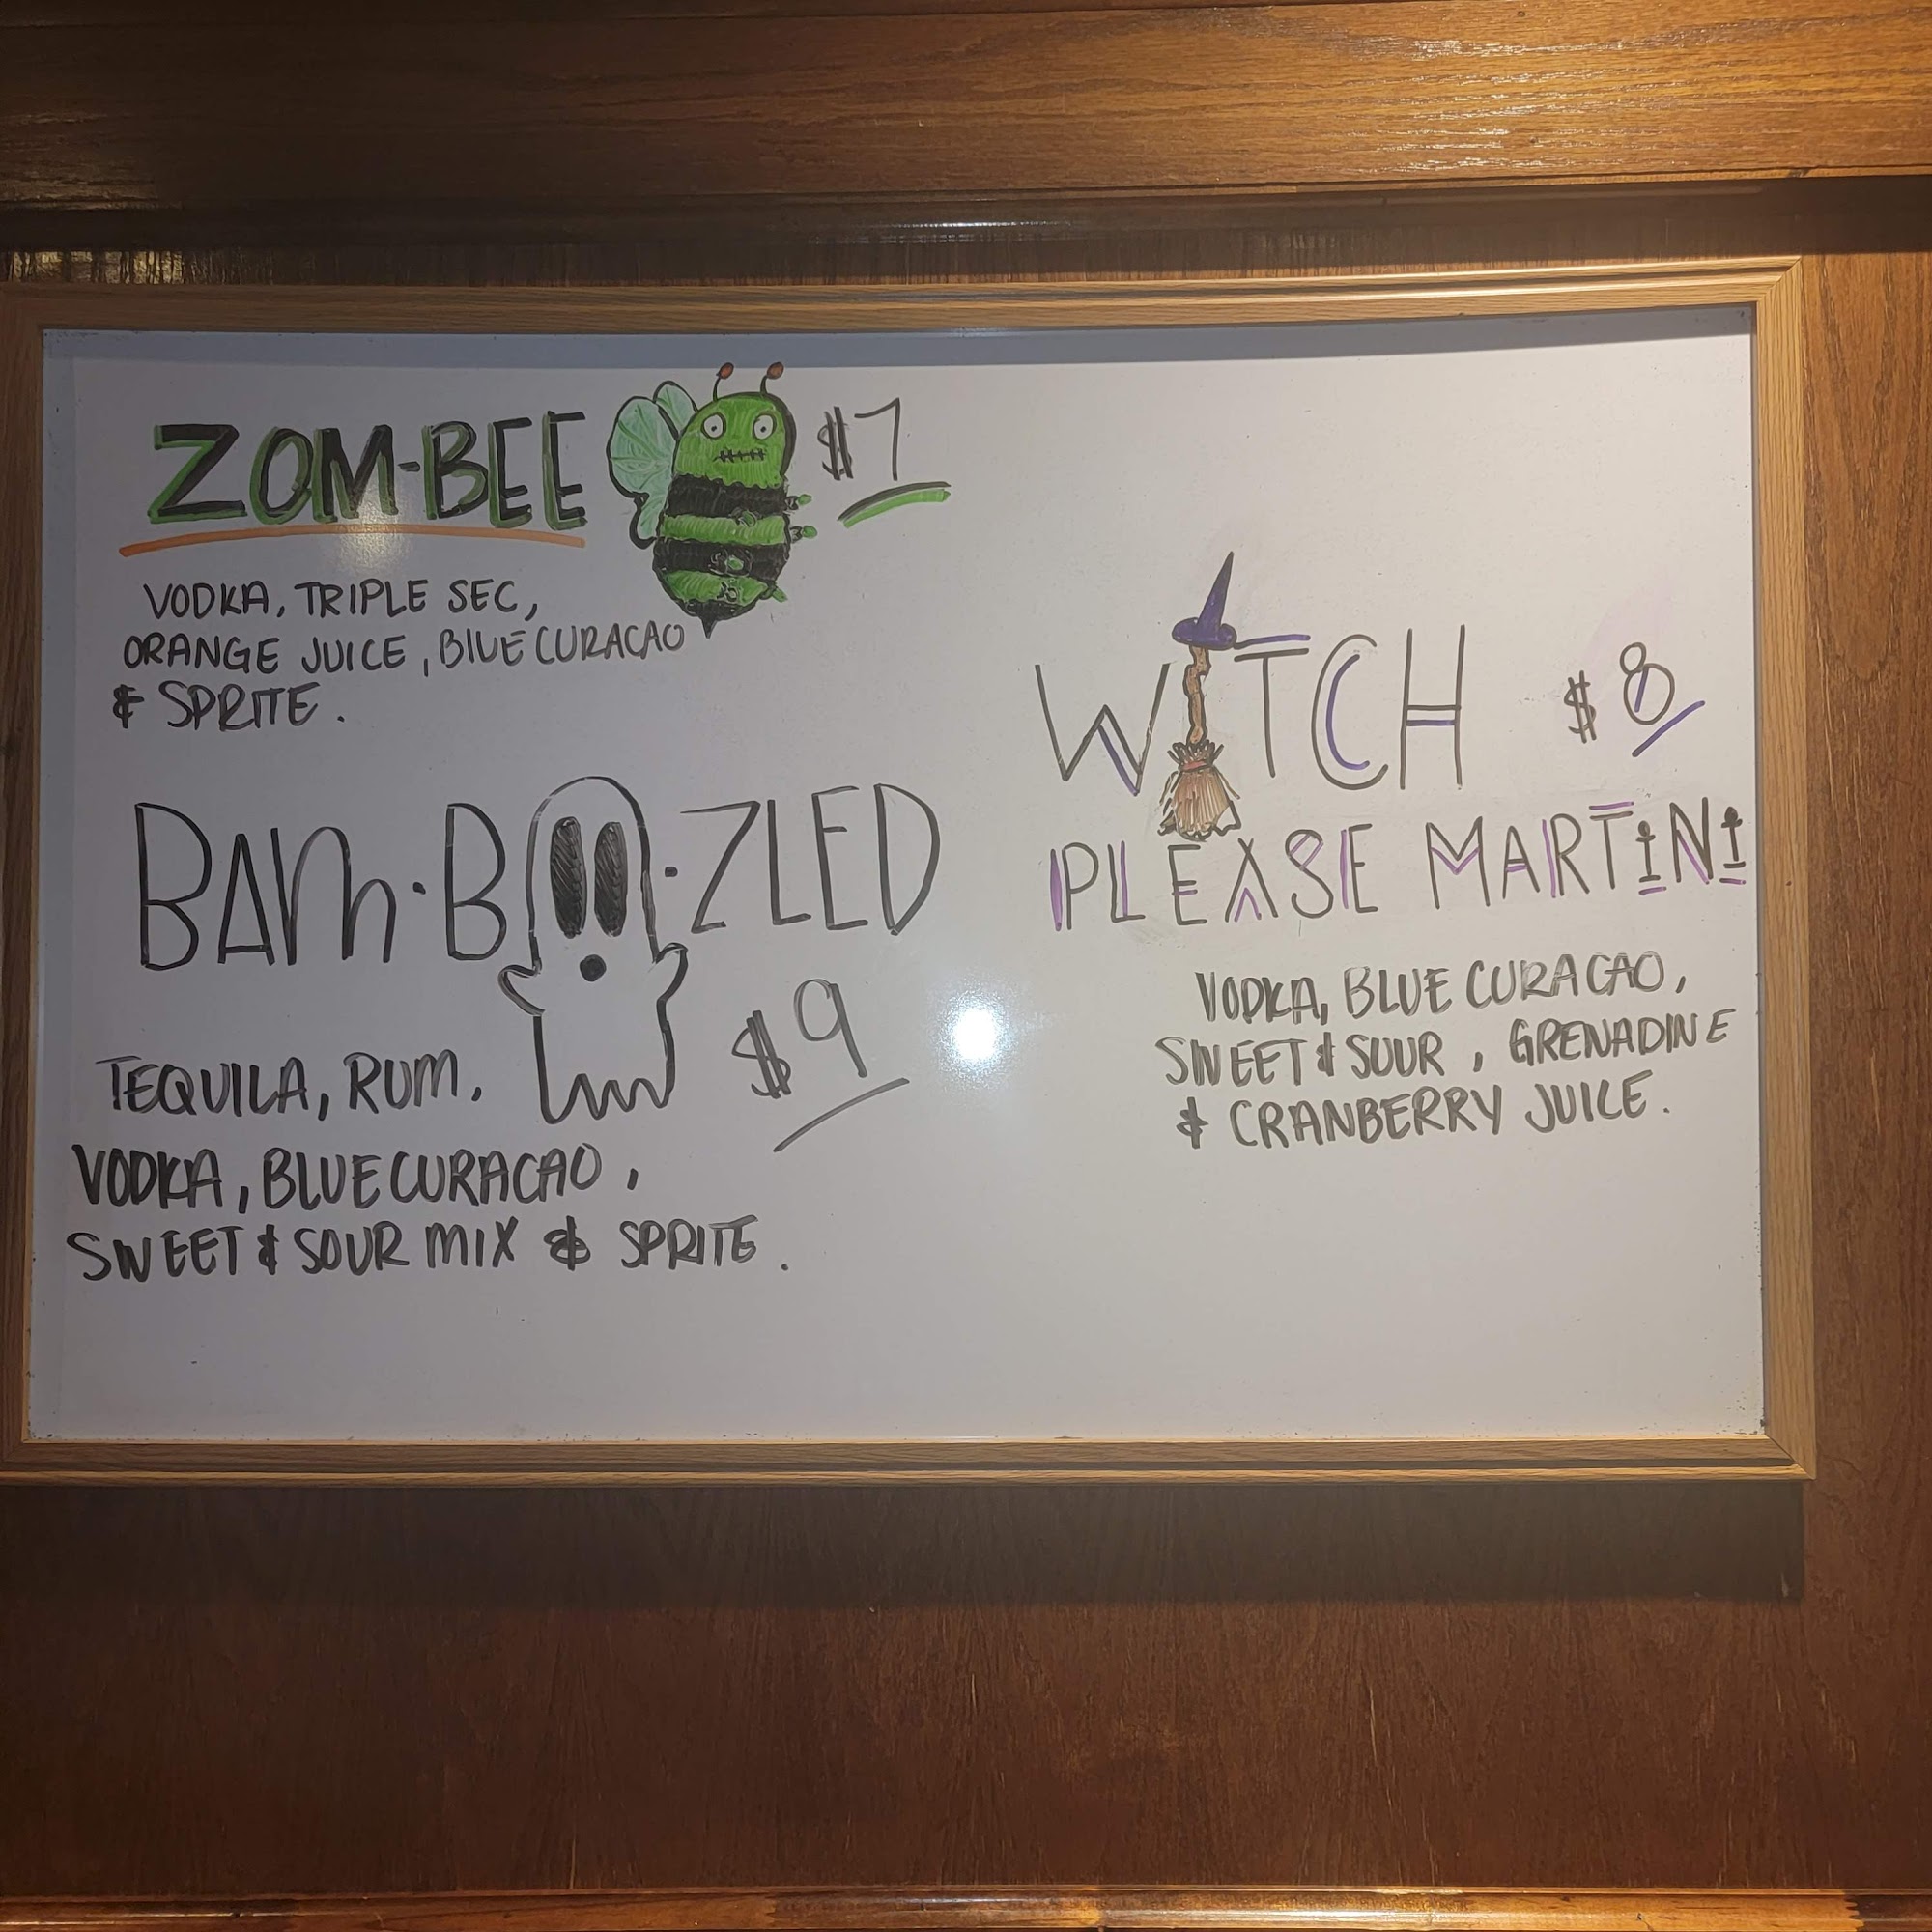 ZOM-BEE $7
VODKA, TRIPLE SEC,
ORANGE JUICE, BLUE CURACAO
& SPRITE.
BAM·BOO·ZLED
$9
TEQUILA, RUM,
VODKA, BLUE CURACAO,
SWEET & SOUR MIX & SPRITE.
WITCH $8
PLEASE MARTINI
VODKA, BLUE CURACAO,
SWEET & SOUR, GRENADINE
& CRANBERRY JUICE.